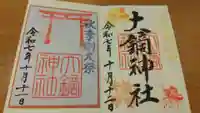 大鏑神社
令和七年十月十二日
秋季例大祭
大鏑
神社
令和七年十月十二日